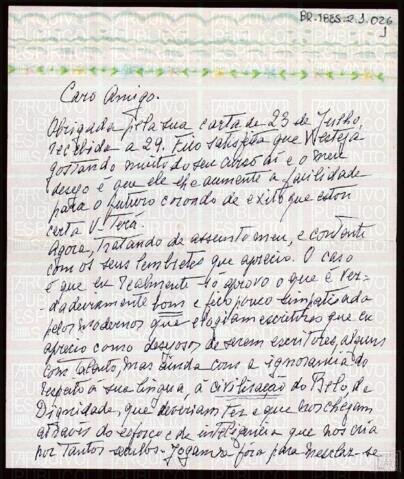 BR.IBES.2.1.026
1
Caro Amigo.
Obrigada pela sua carta de 23 de Julho,
recebida a 29. Fico satisfeita que esteja
gostando muito do seu curso aí e o meu
desejo é que ele lhe aumente a facilidade
para o futuro coroado de exito que estou
certa V. Terá.
Agora, tratando de assunto meu, e contente
com os seus lembretes que aprecio. O caso
é que eu realmente só aprovo o que é ver-
dadeiramente bom e fico pouco simpatisada
pelos modernos que elogiam escritores que eu
aprecio como desejosos de serem escritores, alguns
com talento, mas ainda com a ignorancia do
respeito á sua lingua, á civilização do Belo, da
Dignidade, que deveriam ter e que nos chegam
através do esforço e da inteligencia que nos cria
por tantos seculos. Jogam fora para mesclar-se